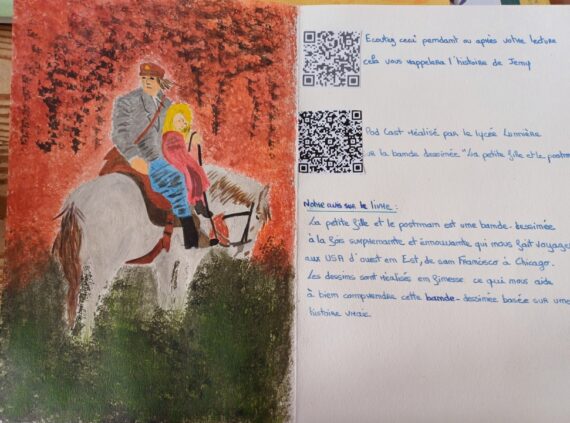 Ecoutez ceci pendant ou après votre lecture
cela vous rappelera l'histoire de Jenny
Pod Cast réalisé par le lycée Lumière
sur la bande dessinée "La petite fille et le postman
Notre avis sur le livre :
La petite fille et le postman est une bande-dessinée
à la fois surprenante et émouvante qui nous fait voyager
aux USA d'ouest en Est, de san Francisco à Chicago.
Les dessins sont réalisés en finesse ce qui nous aide
à bien comprendre cette bande-dessinée basée sur une
histoire vraie.